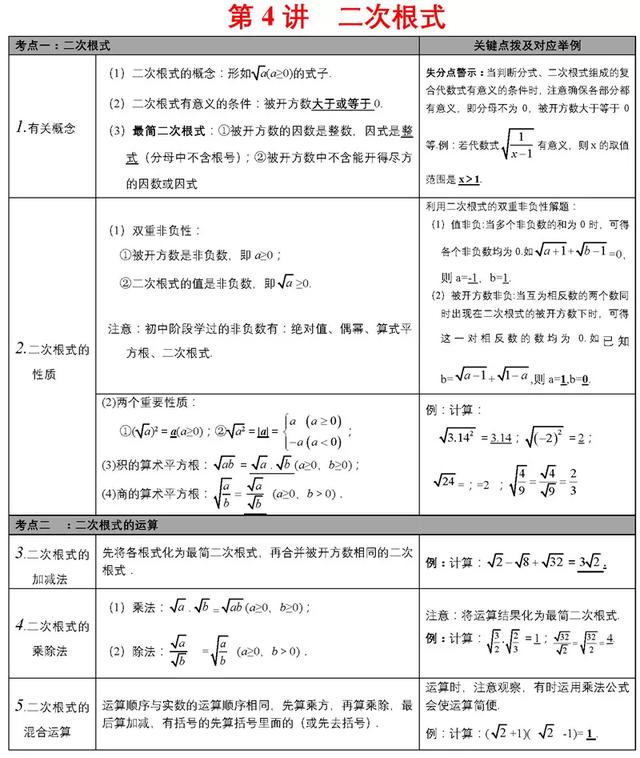 第 4 讲 二次根式
考点一：二次根式
关键点拨及对应举例
1.有关概念
（1）二次根式的概念：形如√a(a≥0)的式子.
（2）二次根式有意义的条件：被开方数大于或等于0.
（3）最简二次根式：①被开方数的因数是整数，因式是整
式（分母中不含根号）；②被开方数中不含能开得尽方
的因数或因式
失分点警示：当判断分式、二次根式组成的复
合代数式有意义的条件时，注意确保各部分都
有意义，即分母不为 0，被开方数大于等于 0
等.例：若代数式√(1/(x−1)) 有意义，则 x 的取值
范围是 x＞1.
2.二次根式的
性质
（1）双重非负性：
①被开方数是非负数，即 a≥0；
②二次根式的值是非负数，即√a ≥0.
注意：初中阶段学过的非负数有：绝对值、偶幂、算式平
方根、二次根式.
利用二次根式的双重非负性解题：
（1）值非负:当多个非负数的和为 0 时，可得
各个非负数均为 0.如√(a+1)+√(b−1)=0，
则 a=-1，b=1.
（2）被开方数非负:当互为相反数的两个数同
时出现在二次根式的被开方数下时，可得
这一对相反数的数均为 0.如已知
b=√(a−1)+√(1−a),则 a=1,b=0.
(2)两个重要性质：
①(√a)²=a(a≥0)；②√a²=|a|={a (a≥0) −a (a<0)；
(3)积的算术平方根：√ab = √a · √b (a≥0，b≥0)；
(4)商的算术平方根：√(a/b) = √a/√b (a≥0，b＞0)．
例：计算：
√3.14² =3.14；√(−2)² =2；
√24 =；=2 ；√(4/9) = √4/√9 = 2/3
考点二 ：二次根式的运算
3.二次根式的
加减法
先将各根式化为最简二次根式，再合并被开方数相同的二次
根式．
例：计算：√2−√8+√32 =3√2.
4.二次根式的
乘除法
（1）乘法：√a · √b =√ab(a≥0，b≥0)；
（2）除法：√a/√b =√(a/b) (a≥0，b＞0)．
注意：将运算结果化为最简二次根式.
例：计算：√(3/2)·√(2/3) =1；√32/√2=√(32/2)=4
5.二次根式的
混合运算
运算顺序与实数的运算顺序相同，先算乘方，再算乘除，最
后算加减，有括号的先算括号里面的（或先去括号）.
运算时，注意观察，有时运用乘法公式
会使运算简便.
例：计算：(√2 +1)( √2 -1)= 1 .